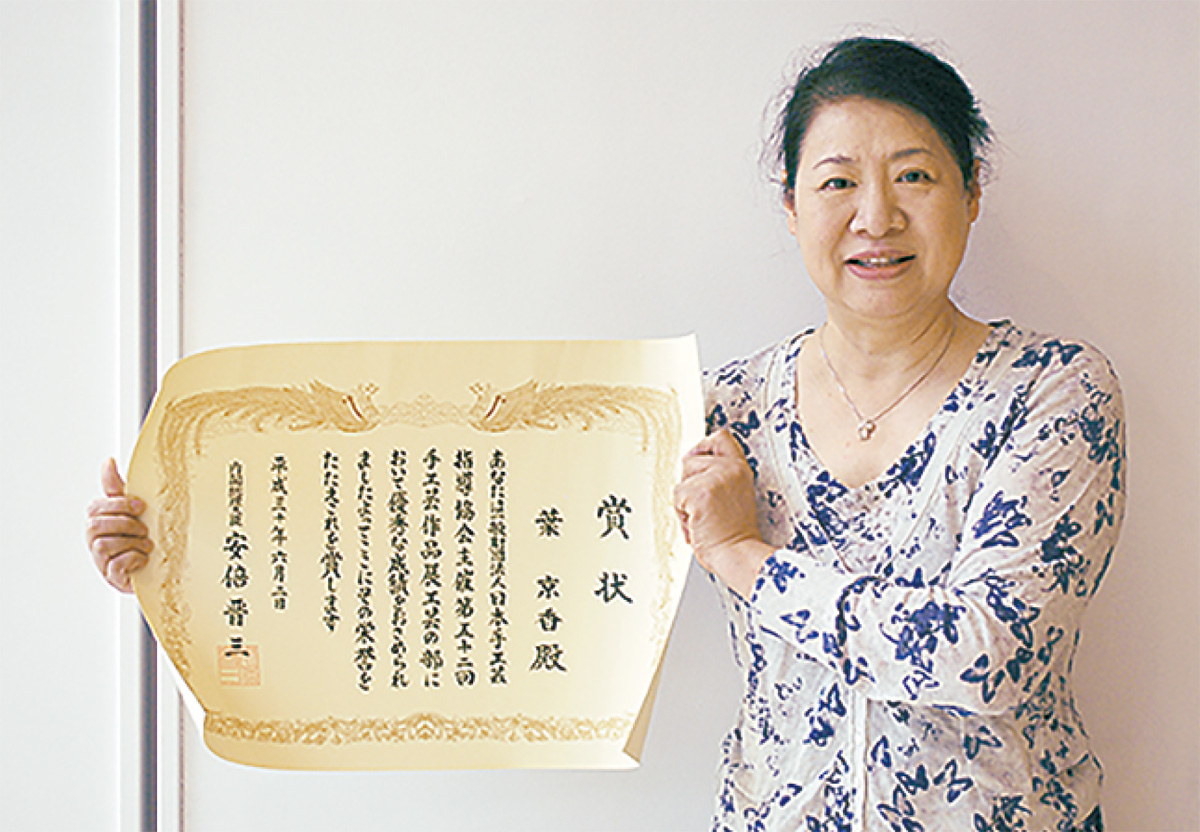 賞状
葉京香殿
あなたは一般財団法人日本手工芸
指導協会主催第五十二回
手工芸作品展工芸の部に
おいて優秀な成績をおさめられ
ましたよってここにその栄誉を
たたえこれを賞します
平成三十年六月二日
内閣総理大臣 安倍晋三